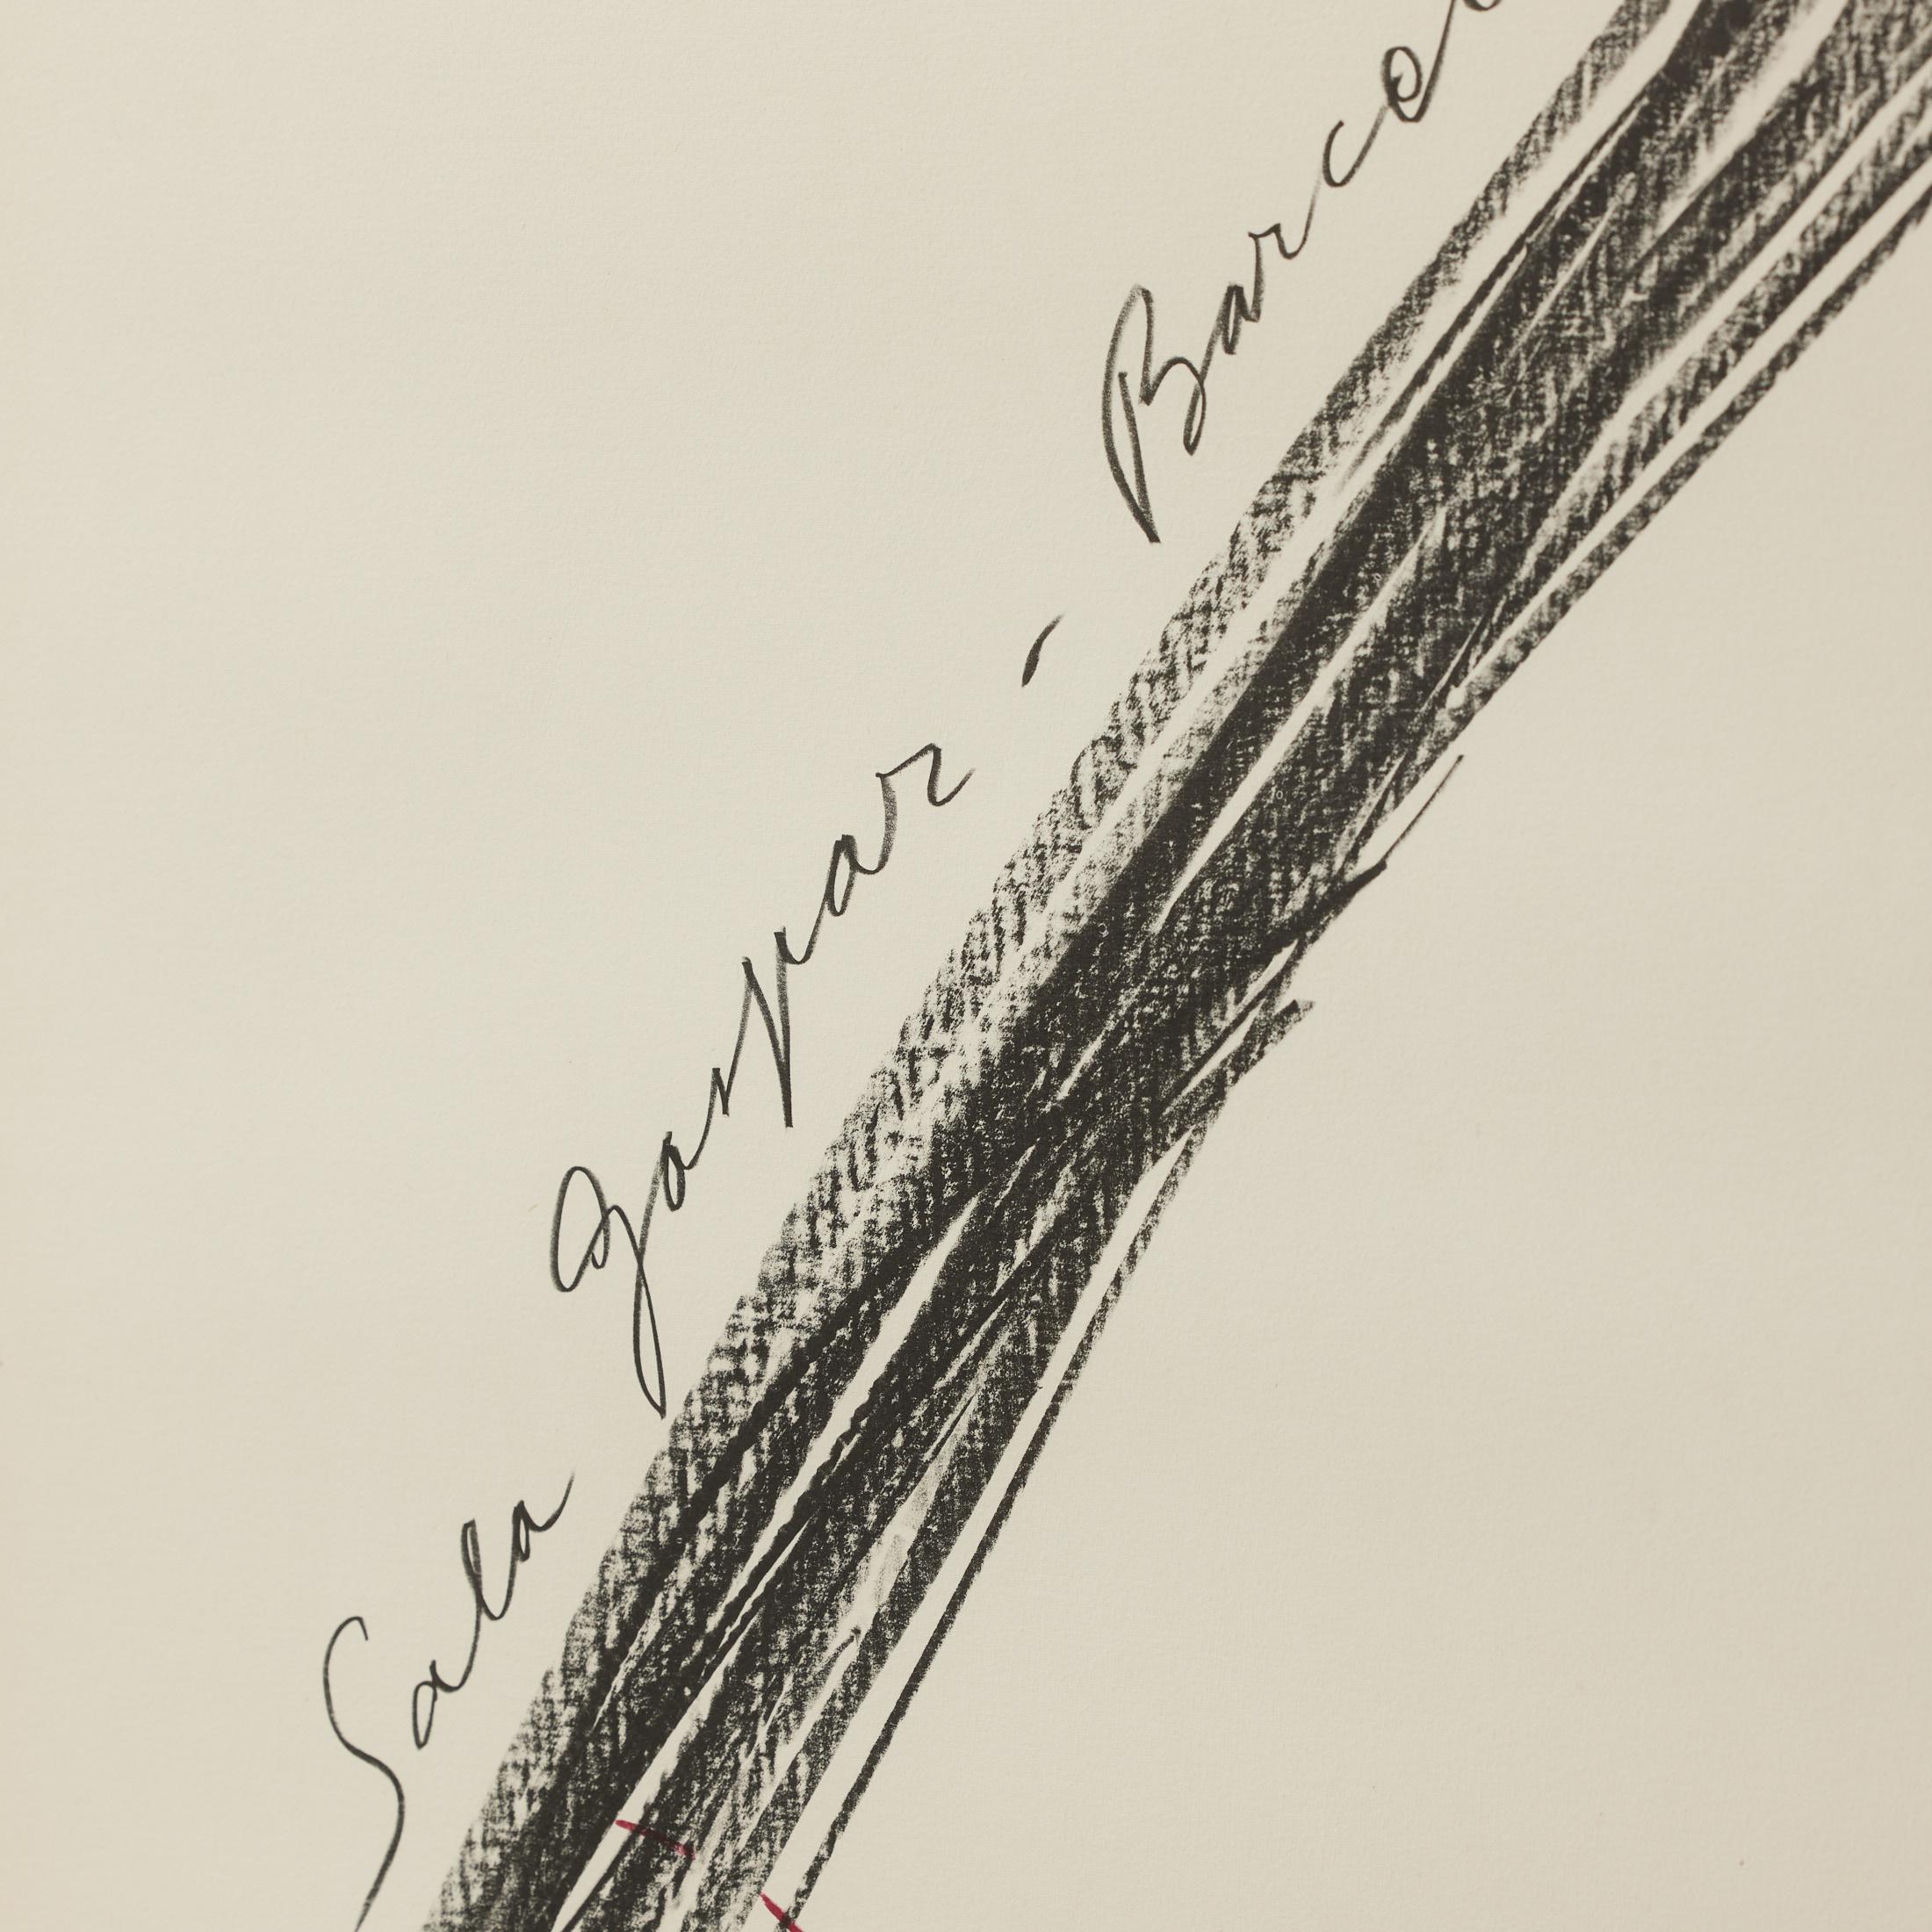 Sala Gaspar - Barce